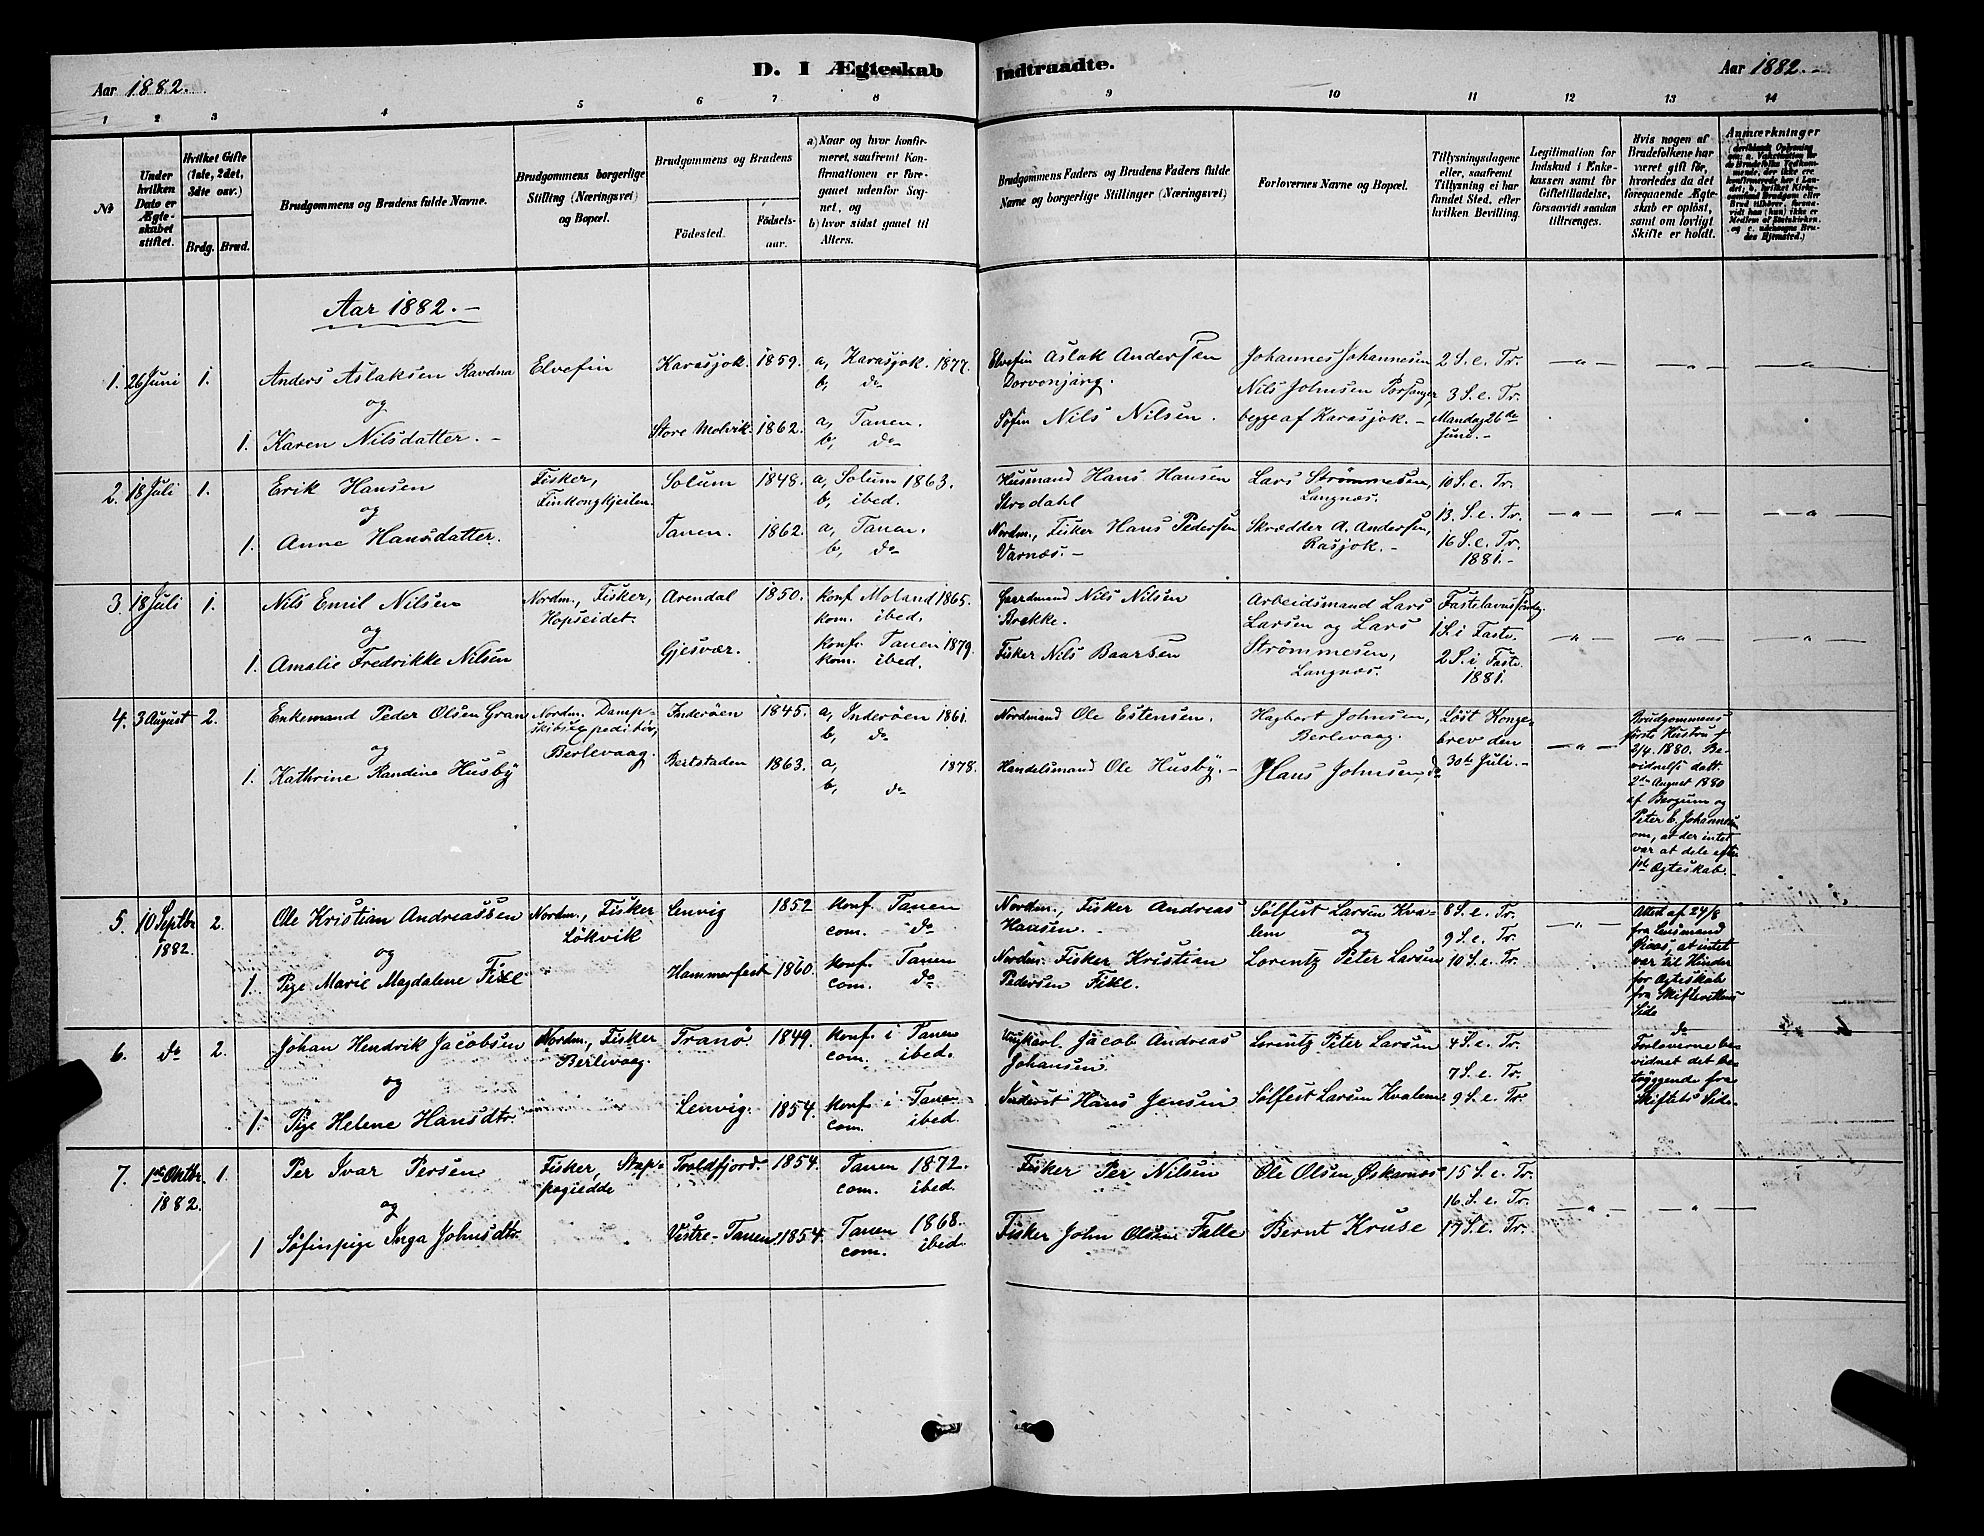 Aar 1882.
D. I Ægteskab
Indtraadte.
Aar 1882.
1 2 3 4 5 6 7 8 9 10 11 12 13 14
№
Under hvilken Dato er Ægteskabet stiftet.
Hvilket Gifte (1ste, 2det, 3die osv.)
Brdg. Brud.
Brudgommens og Brudens fulde Navne.
Brudgommens borgerlige Stilling (Næringsvei) og Bopæl.
Brudgommens og Brudens
Fødested.
Fødselsaar.
a) Naar og hvor konfirmeret, saafremt Konfirmationen er foregaaet udenfor Sognet, og
b) hvor sidst gaaet til Alters.
Brudgommens Faders og Brudens Faders fulde Navne og borgerlige Stillinger (Næringsvei)
Forlovernes Navne og Bopæl.
Tillysningsdagene eller, saafremt Tillysning ei har fundet Sted, efter hvilken Bevilling.
Legitimation for Indskud i Enkekassen samt for Giftetilladelse, forsaavidt saadan tiltrænges.
Hvis nogen af Brudefolkene har været gift før, hvorledes da det foregaaende Ægteskab er opløst, samt om lovligt Skifte er holdt.
Anmærkninger
Aar 1882.
1. 26 Juni 1. Anders Aslaksen Ravdna Elvefin Karasjok 1859. a, Karasjok. 1877. Elvefin Aslak Andersen Johannes Johannesen 2 S. e. Tr.
og b, do Dorvonjarg. Nils Johnsen Porsanger, 3 S. e. Tr.
1. Karen Nilsdatter. Store Molvik. 1862. a, Tanen. Søfin Nils Nilsen. begge af Karasjok. Mandag 26de
b, do Juni.
2. 18 Juli 1. Erik Hansen Fisker, Solum 1848. a, Solum 1863. Husmand Hans Hansen Lars Strømmesen, 10 S. e. Tr.
og Finkongkjeilen b, ibed. Strodahl Langnæs. 13. S. e. Tr.
1. Anne Hansdatter. Tanen. 1862. a, Tanen. Nordm., Fisker Hans Pedersen Skrædder A. Andersen, 16 S. e. Tr.
b, do Varnæs. Rasjok. 1881.
3. 18 Juli 1. Nils Emil Nilsen Nordm., Fisker, Arendal 1850. konf Moland 1865. Gaardmand Nils Nilsen Arbeidsmand Lars
og Hopseidet. kom. ibed. Brekke. Larsen og Lars 1 S. i Faste.
1. Amalie Fredrikke Nilsen Gjesvær. konf. Tanen 1879. Fisker Nils Baarsen Strømmesen, 2 S. i Faste
kom. ibed. Langnæs. 1881.
4. 3 August 2. Enkemand Peder Olsen Gran Nordm. Dampskibsexpeditør, Inderøen 1845. a, Inderøen 1861. Nordmand Ole Estensen. Hagbart Johnsen, Løst Kongebrev den
og Berlevaag. b, do Berlevaag. 30te Juli.
1. Kathrine Randine Husby Bertstaden 1863. a, 1878. Handelsmand Ole Husby. Hans Johnsen, do
b, do
Brudgommens
første Hustru †
2/4. 1880. Bevidnelse datt.
2den August 1880
af Bergum og
Peter C. Johannesen
om, at der intet
var at dele efter
1ste Ægteskab.
5. 10 Septbr 2. Ole Kristian Andreassen Nordm., Fisker Lenvig 1852 konf. Tanen Nordm., Fisker Andreas Sølfest Larsen Kvalem 8 S. e. Tr.
1882. og Løkvik com. do Hansen. og 9 S. e. Tr.
1. Pige Marie Magdalene Fixe Hammerfest 1860. konf. Tanen Nordm. Fisker Kristian Lorentz Peter Larsen 10 S. e. Tr.
com. do Pedersen Fixe.
Attest af 24/8
fra Lensmand
at intet
var til Hinder
for Ægteskab
fra Skifterettens
Side
6. do 2. Johan Hendrik Jacobsen Nordm., Fisker Tranø 1849. konf. i Tanen Ungkarl Jacob Andreas Lorentz Peter Larsen 4 S. e. Tr.
og Berlevaag com. ibed. Johansen. 7 S. e. Tr.
1. Pige Helene Hansdtr. Lenvig. 1854. konf. i Tanen Inderst Hans Jensen Sølfest Larsen Kvalem 9 S. e. Tr.
com. ibed.
do
Forloverne bevidnet det betryggende fra
Skiftets Side.
7. 1ste Oktbr. 1. Per Ivar Persen Fisker, Stappogiedde Troldfjord. 1854. Tanen 1872. Fisker Per Nilsen Ole Olsen, Øskarnæs 15 S. e. Tr.
1882. og com. ibed. 16 S. e. Tr.
1 Søfinpige Inga Johnsdtr. Vestre-Tanen. 1854. Tanen 1868. Fisker John Olsen Falle Bernt Kruse 17 S. e. Tr.
com. ibed.